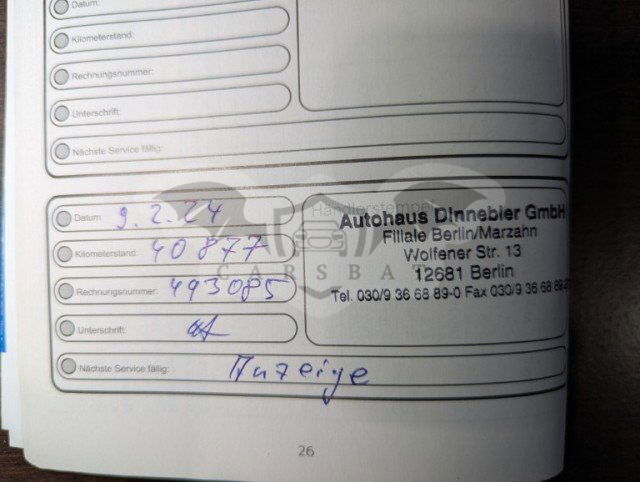 Datum:
Kilometerstand:
Rechnungsnummer:
Unterschrift:
Nächste Service fällig:
Datum: 9.2.24
Kilometerstand: 40877
Rechnungsnummer: 493085
Unterschrift:
Nächste Service fällig: Anzeige
Händlerstempel
Autohaus Dinnebier GmbH
Filiale Berlin/Marzahn
Wolfener Str. 13
12681 Berlin
Tel. 030/9 36 68 89-0 Fax 030/9 36 68 89-
CARSBA
26